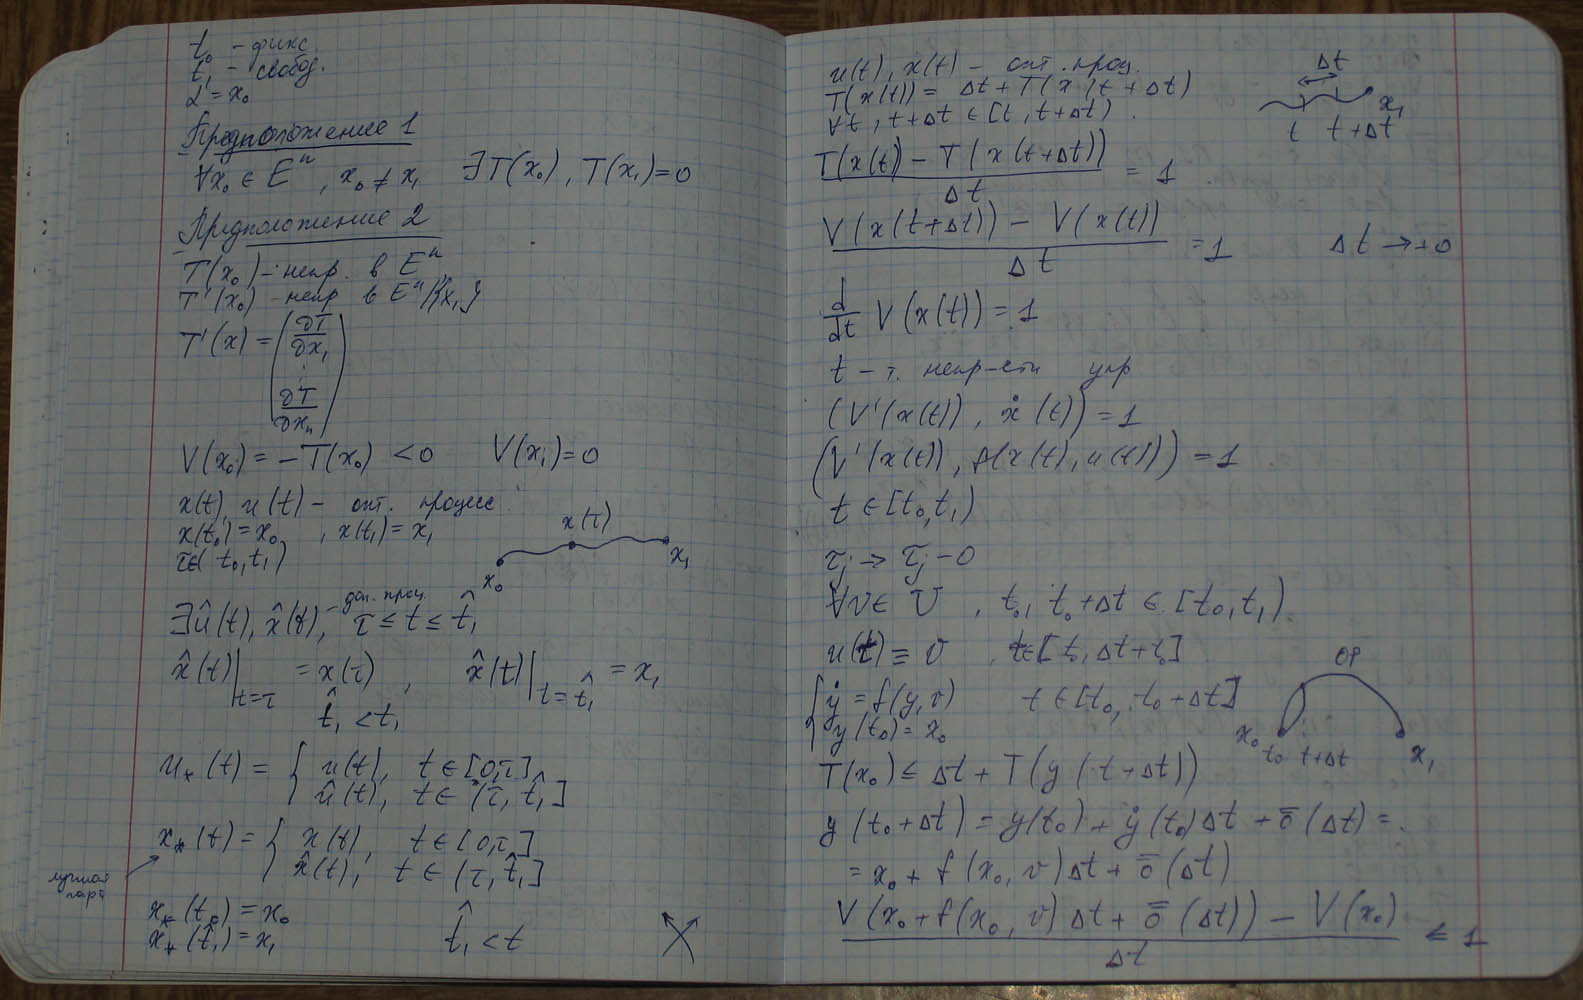 t₀ - фикс.
t₁ - свобод.
α = x₀
Предположение 1
∀x₀ ∈ Eⁿ, x₀ ≠ x₁ ∃T(x₀), T(x₁)=0
Предположение 2
T(x₀) - непр. в Eⁿ
T'(x₀) - непр в Eⁿ\{x₁}
T'(x) = (∂T/∂x₁ ⋮ ∂T/∂xₙ)
V(x₀) = -T(x₀) < 0 V(x₁)=0
x(t), u(t) - опт. процесс
x(t₀) = x₀, x(t₁) = x₁
τ∈(t₀, t₁)
x₀ x(τ) x₁
∃û(t), x̂(t), - доп. проц. τ ≤ t ≤ t̂₁
x̂(t)|t=τ = x(τ), x̂(t)|t=t̂₁ = x₁
t̂₁ < t₁
u*(t) = { u(t), t∈[0,τ]
û(t), t∈(τ, t̂₁]
x*(t) = { x(t), t∈[0,τ]
x̂(t), t∈(τ, t̂₁]
лучшая
x*(t₀) = x₀
x*(t̂₁) = x₁ t̂₁ < t
u(t), x(t) - опт. проц.
T(x(t)) = Δt + T(x(t + Δt)
∀t, t+Δt ∈ [t, t+Δt)
Δt
x₁
t t+Δt
(T(x(t)) - T(x(t+Δt)))/Δt = 1
(V(x(t+Δt)) - V(x(t)))/Δt = 1 Δt → +0
d/dt V(x(t)) = 1
t - т. непр-сти упр
(V'(x(t)), ẋ(t)) = 1
(V'(x(t)), f(x(t), u(t))) = 1
t ∈ [t₀, t₁)
τⱼ → τⱼ - 0
∀v∈ U, t₀, t₀+Δt ∈ [t₀, t₁)
u(t) ≡ v, t∈[t₀, Δt+t₀]
{ ẏ = f(y, v) t∈[t₀, t₀+Δt]
y(t₀) = x₀
ОР
x₀ t₀ t+Δt x₁
T(x₀) ≤ Δt + T(y(t+Δt))
y(t₀+Δt) = y(t₀) + ẏ(t₀)Δt + ō(Δt) =
= x₀ + f(x₀, v)Δt + ō(Δt)
(V(x₀ + f(x₀, v)Δt + ō(Δt)) - V(x₀))/Δt ≤ 1